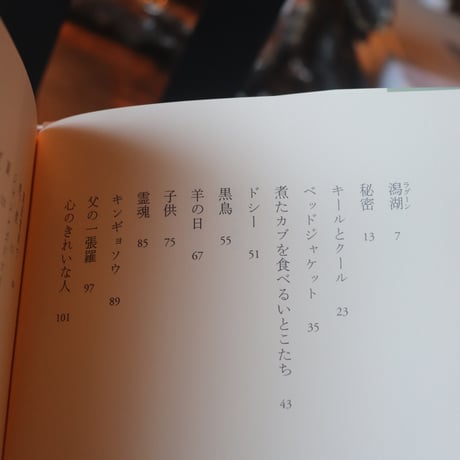 潟湖 ラグーン 7
秘密 13
キールとクール 23
ベッドジャケット 35
煮たカブを食べるいとこたち 43
ドシー 51
黒鳥 55
羊の日 67
子供 75
霊魂 85
キンギョソウ 89
父の一張羅 97
心のきれいな人 101